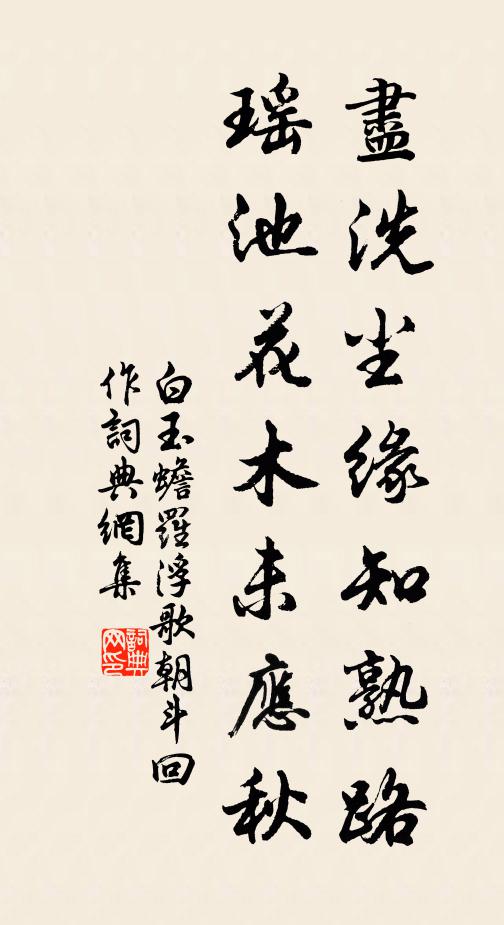 盡洗尘緣知熟路
瑶池花木未應秋
白玉蟾羅浮歌朝斗回
作詞典網集
詞典网印